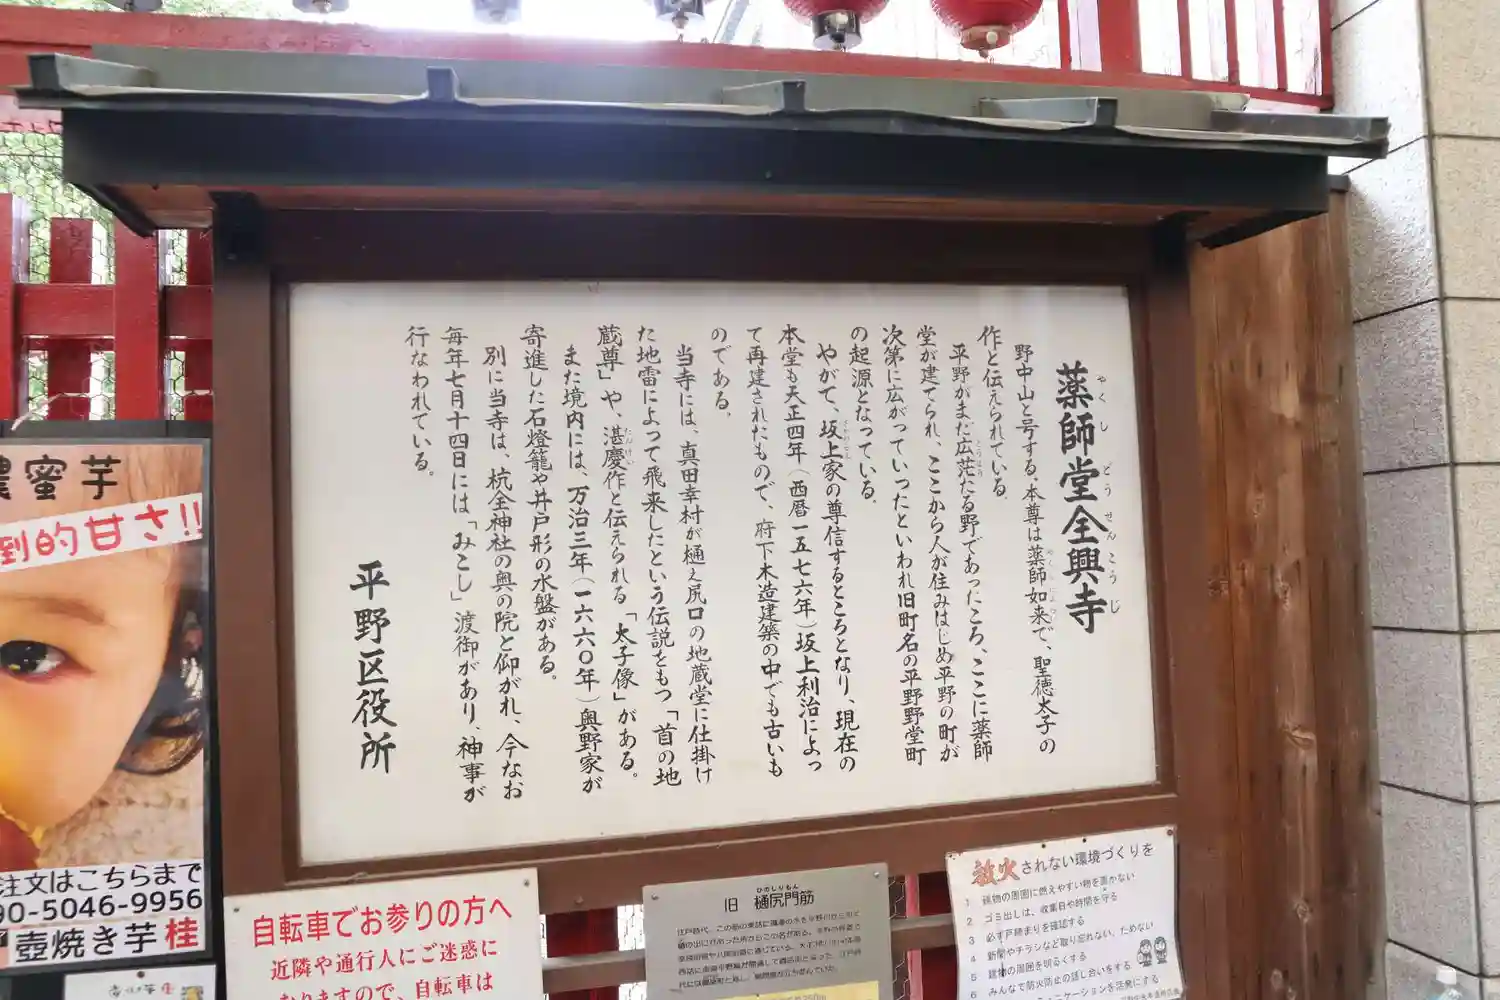 薬師堂全興寺
やくし どう せんこうじ
野中山と号する。本尊は薬師如来で、聖徳太子の
作と伝えられている。
平野がまだ広茫たる野であったころ、ここに薬師
堂が建てられ、ここから人が住みはじめ平野の町が
次第に広がっていったといわれ旧町名の平野野堂町
の起源となっている。
やがて、坂上家の尊信するところとなり、現在の
本堂も天正四年(西暦一五七六年)坂上利治によっ
て再建されたもので、府下木造建築の中でも古いも
のである。
当寺には、真田幸村が樋之尻口の地蔵堂に仕掛け
た地雷によって飛来したという伝説をもつ「首の地
蔵尊」や、湛慶作と伝えられる「太子像」がある。
また境内には、万治三年(一六六〇年)奥野家が
寄進した石燈籠や井戸形の水盤がある。
別に当寺は、杭全神社の奥の院と仰がれ、今なお
毎年七月十四日には「みこし」渡御があり、神事が
行なわれている。
平野区役所
濃蜜芋
倒的甘さ!!
注文はこちらまで
90-5046-9956
壺焼き芋 桂
自転車でお参りの方へ
近隣や通行人にご迷惑に
なりますので、自転車は
旧 樋尻門筋
ひのしりもん
放火されない環境づくりを
1 建物の周囲に燃えやすい物を置かない
2 ゴミ出しは、収集日や時間を守る
3 必ず戸締まりを確認する
4 新聞やチラシなど取り忘れない、ためない
5 建物の周囲を明るくする
6 みんなで防火防止の話し合いをする